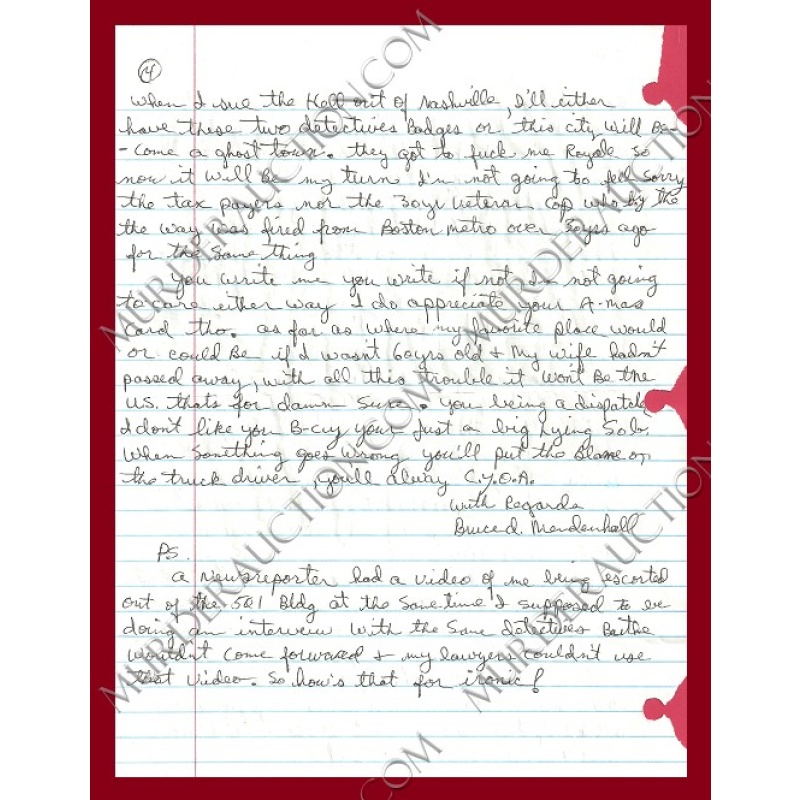 4
When I sue the Hell out of Nashville, I'll either
have these two detectives Badges or this city will Be-
-come a ghost town. they got to fuck me Royale so
now it will Be my turn I'm not going to feel sorry
the tax payers nor the 30yr Veteran Cop who by the
the way was fired from Boston Metro over 30yrs ago
for the Same thing
You write me you write if not I'm not going
to care either way I do appreciate your X-mas
Card tho. as far as where my favorite place would
or could Be if I wasn't 60yrs old + My wife hadn't
passed away, with all this trouble it won't Be the
US. thats for damn Sure. You being a dispatch
I don't like you B-cuz your Just a big Lying Sob.
When Somthing goes wrong you'll put the Blame on
the truck driver, you'll alway C.Y.O.A.
With Regards
Bruce d. Mendenhall
PS.
a Newsreporter had a video of me being escorted
out of the 501 Bldg at the Same time I supposed to be
doing an interview With the Same detectives But he
wouldn't Come forward + my lawyers couldn't use
that Video. So how's that for ironic!
MURDERAUCTION.COM